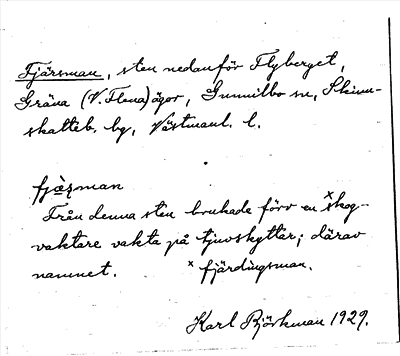 Fjärsman, sten nedanför Flyberget,
Gräna (V. Flena) ägor, Gunnilbo sn, Skinn-
skatteb. hg, Västmanl. l.
fjæ̀ʂman
Från denna sten brukade förv en ˣskog-
vaktare vakta på tjuvskyttar; därav
namnet. ˣ fjärdingsman.
Karl Björkman 1929.